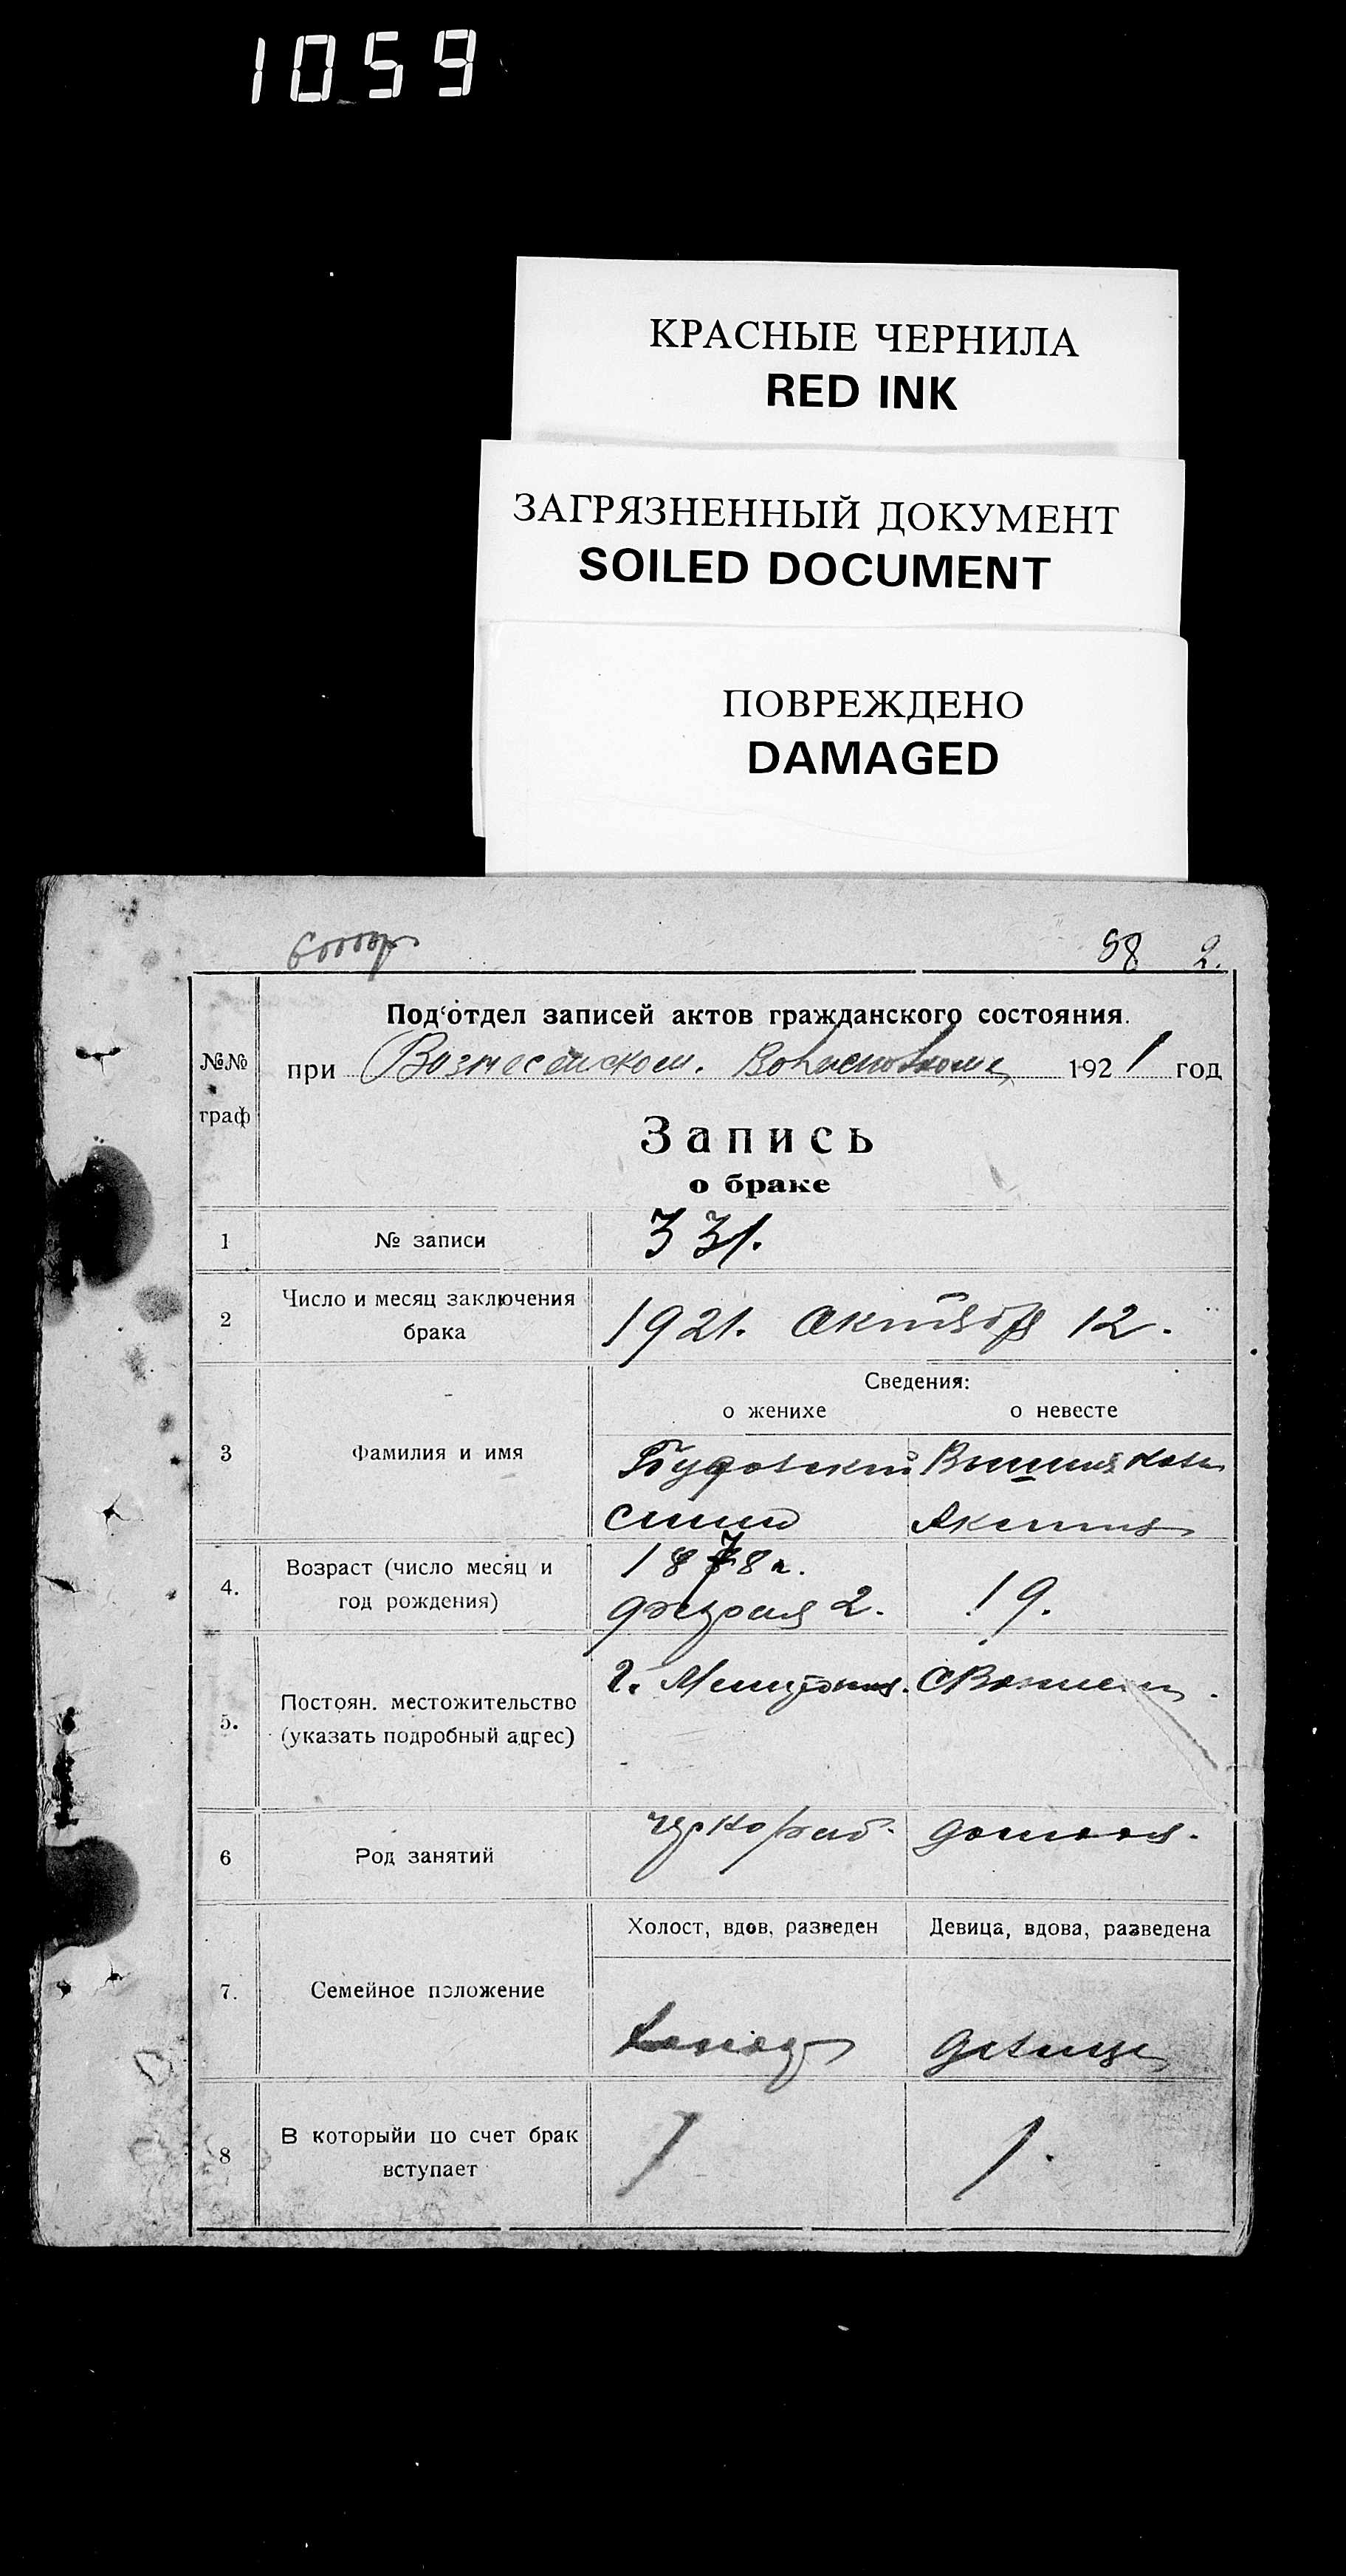 1059
КРАСНЫЕ ЧЕРНИЛА
RED INK
ЗАГРЯЗНЕННЫЙ ДОКУМЕНТ
SOILED DOCUMENT
ПОВРЕЖДЕНО
DAMAGED
98 2.
Под'отдел записей актов гражданского состояния.
№№ граф
при Вознесенском. 1921 год
Запись
о браке
1 № записи 331.
2 Число и месяц заключения
брака
1921. Октября 12.
Сведения:
о женихе о невесте
3 Фамилия и имя
Будовский Вишнякова
4. Возраст (число месяц и
год рождения)
1878 г.
февраля 2. 19.
5. Постоян. местожительство
(указать подробный адрес)
г.
6 Род занятий
чернораб. домаш.
Холост, вдов, разведен Девица, вдова, разведена
7. Семейное положение
девица
8 В которыйи по счет брак
вступает
1 1.